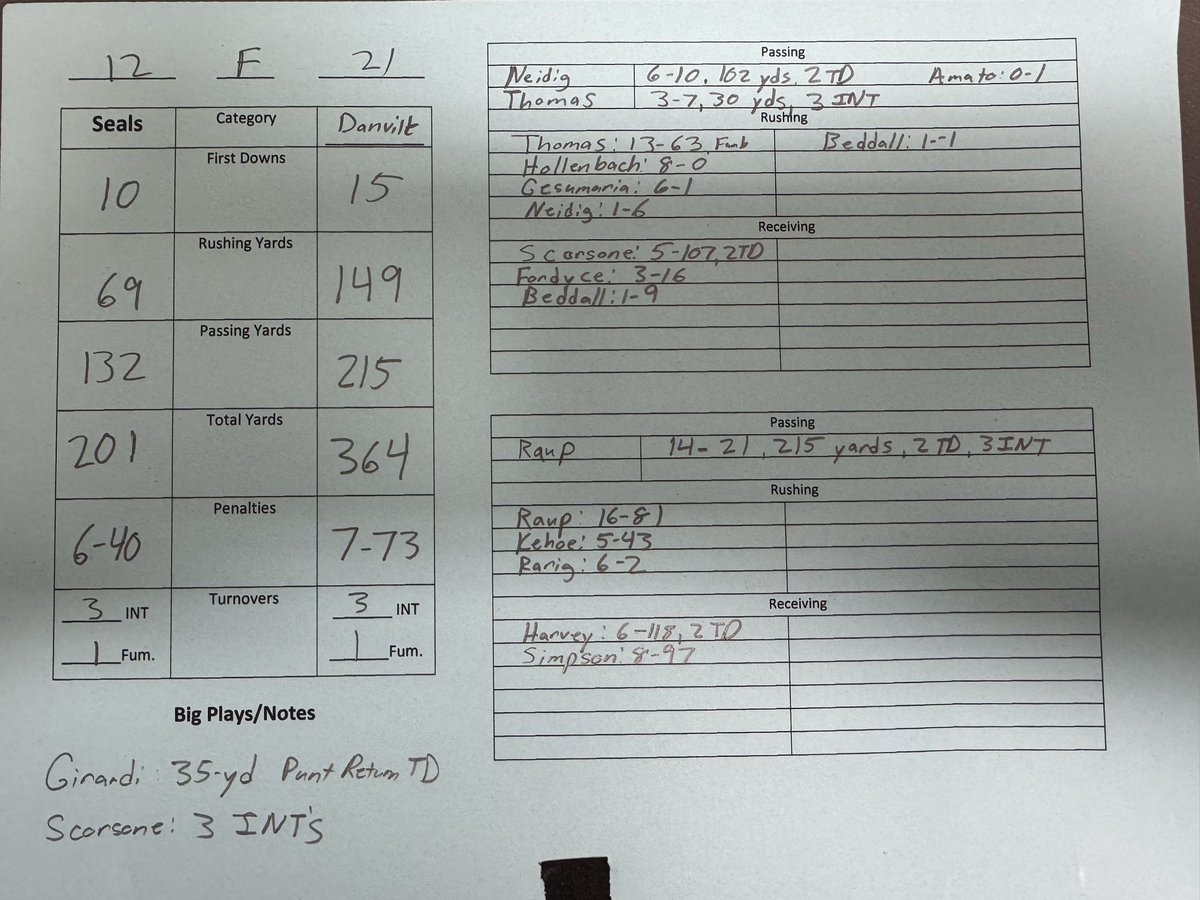 12 F 21
Seals Category Danville
First Downs
10 15
Rushing Yards
69 149
Passing Yards
132 215
Total Yards
201 364
Penalties
6-40 7-73
Turnovers
3 INT 3 INT
1 Fum. 1 Fum.
Big Plays/Notes
Girardi: 35-yd Punt Return TD
Scorsone: 3 INT's
Passing
Neidig 6-10, 102 yds, 2 TD Amato: 0-1
Thomas 3-7, 30 yds, 3 INT
Rushing
Thomas: 13-63, Fumb Beddall: 1--1
Hollenbach: 8-0
Gesumaria: 6-1
Neidig: 1-6
Receiving
Scorsone: 5-107, 2TD
Fordyce: 3-16
Beddall: 1-9
Passing
Raup 14-21, 215 yards, 2 TD, 3 INT
Rushing
Raup: 16-81
Kehoe: 5-43
Rarig: 6-2
Receiving
Harvey: 6-118, 2 TD
Simpson: 8-97